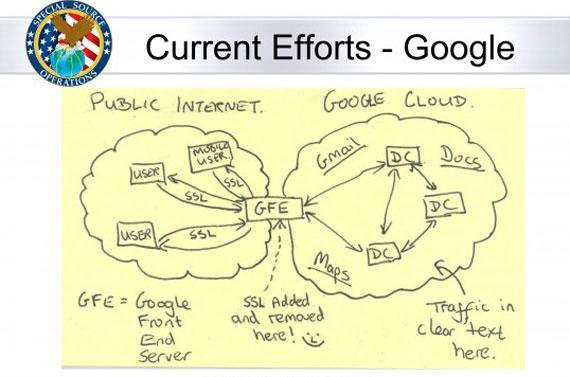 SPECIAL SOURCE
OPERATIONS
Current Efforts - Google
PUBLIC INTERNET.
GOOGLE CLOUD.
MOBILE
USER.
USER
SSL
SSL
USER
SSL
GFE
Gmail
DC
Docs
DC
DC
Maps
GFE = Google
Front
End
Server
SSL Added
and removed
here!
Traffic in
clear text
here.